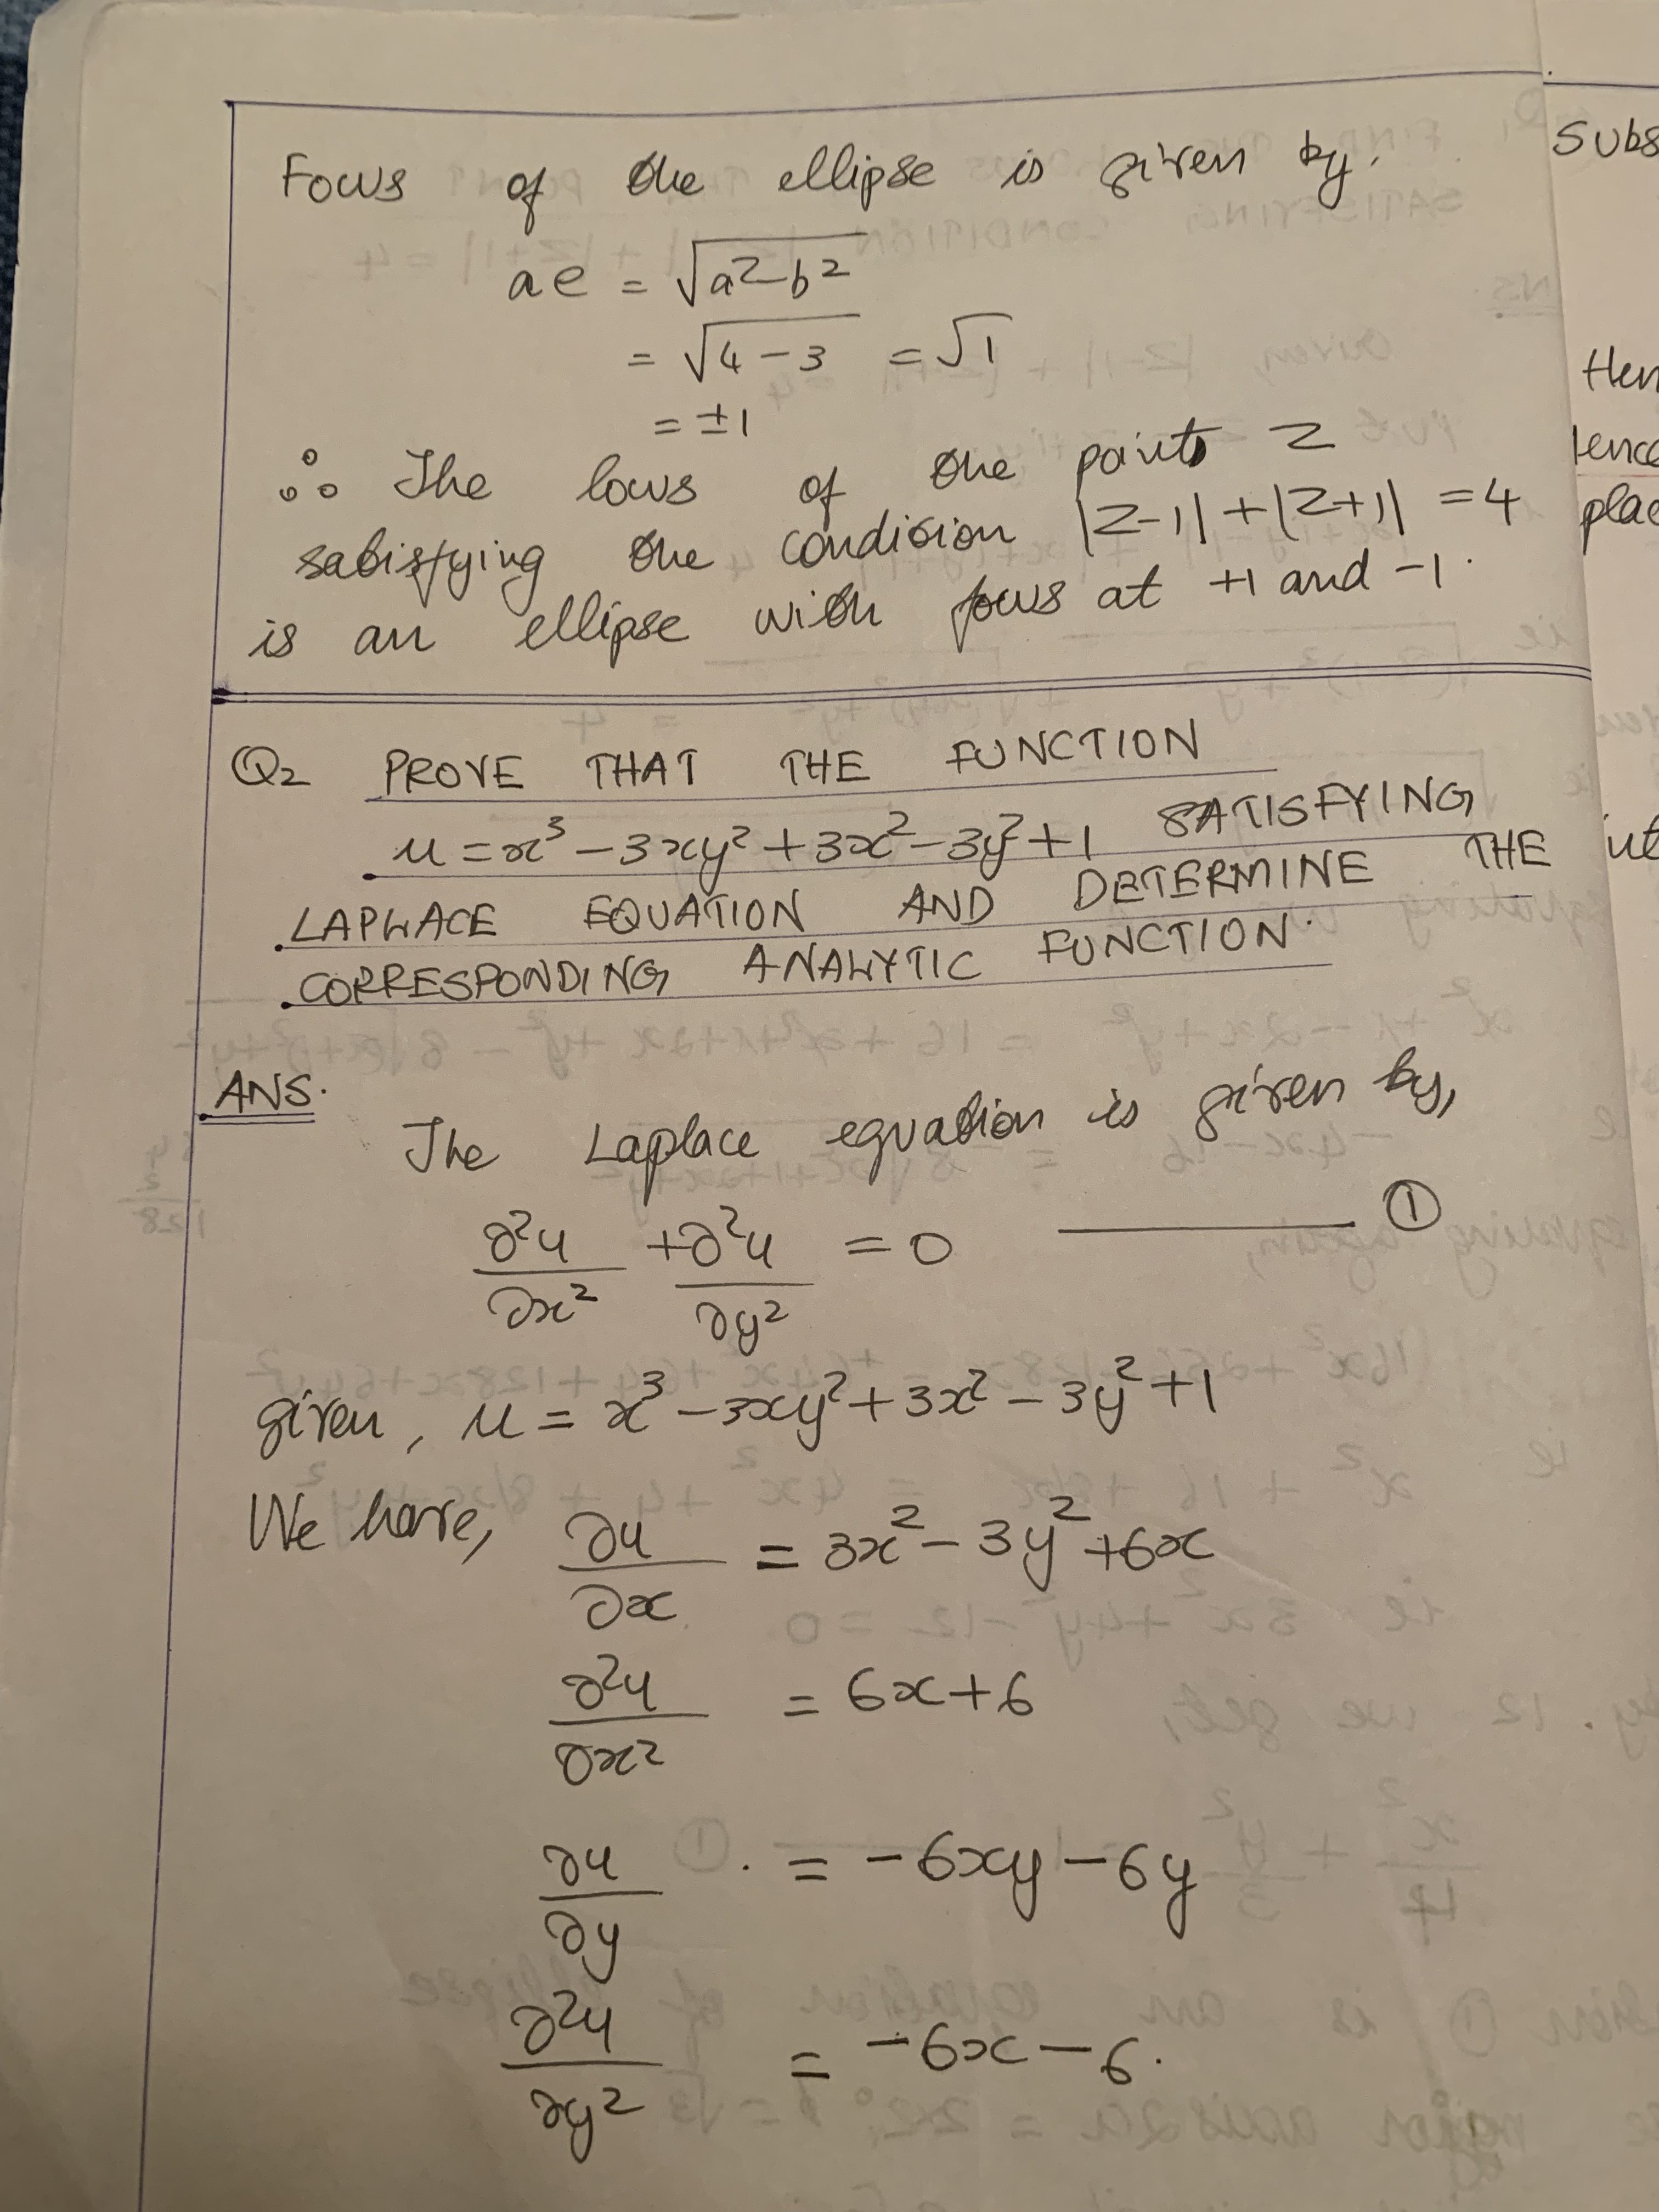 Focus of the ellipse is given by.
ae = √a²-b²
= √4-3 = √1
= ±1
∴ The locus of the points Z
satisfying the condition |Z-1|+|Z+1| =4
is an ellipse with focus at +1 and -1.
Q2 PROVE THAT THE FUNCTION
u=x³-3xy²+3x²-3y²+1 SATISFYING
LAPLACE EQUATION AND DETERMINE THE
CORRESPONDING ANALYTIC FUNCTION.
ANS.
The Laplace equation is given by,
∂²u/∂x² + ∂²u/∂y² = 0 ——— ①
given, u = x³-3xy²+3x²-3y²+1
We have, ∂u/∂x = 3x²-3y²+6x
∂²u/∂x² = 6x+6
∂u/∂y = -6xy-6y
∂²u/∂y² = -6x-6.
Subs
Hen
plac